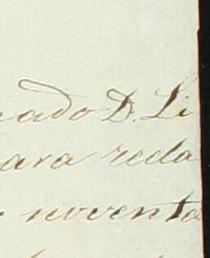 cado D. Li
ara reda
noventa